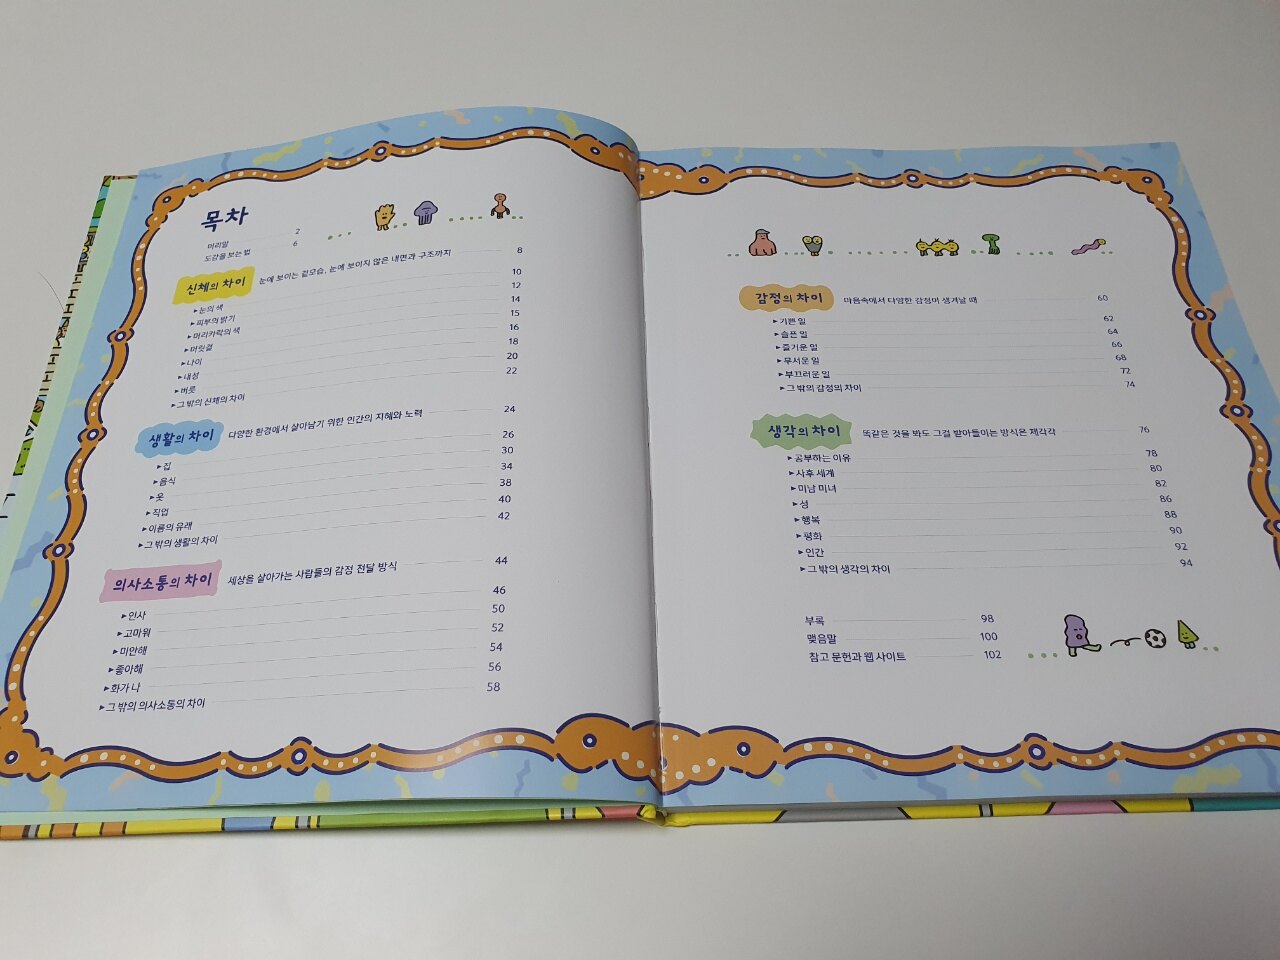 목차
머리말 2
도감을 보는 법 6
신체의 차이 눈에 보이는 겉모습, 눈에 보이지 않은 내면과 구조까지 8
▶눈의 색 10
▶피부의 밝기 12
▶머리카락의 색 14
▶머릿결 15
▶나이 16
▶내성 18
▶버릇 20
▶그 밖의 신체의 차이 22
생활의 차이 다양한 환경에서 살아남기 위한 인간의 지혜와 노력 24
▶집 26
▶음식 30
▶옷 34
▶직업 38
▶이름의 유래 40
▶그 밖의 생활의 차이 42
의사소통의 차이 세상을 살아가는 사람들의 감정 전달 방식 44
▶인사 46
▶고마워 50
▶미안해 52
▶좋아해 54
▶화가 나 56
▶그 밖의 의사소통의 차이 58
감정의 차이 마음속에서 다양한 감정이 생겨날 때 60
▶기쁜 일 62
▶슬픈 일 64
▶즐거운 일 66
▶무서운 일 68
▶부끄러운 일 72
▶그 밖의 감정의 차이 74
생각의 차이 똑같은 것을 봐도 그걸 받아들이는 방식은 제각각 76
▶공부하는 이유 78
▶사후 세계 80
▶미남 미녀 82
▶성 86
▶행복 88
▶평화 90
▶인간 92
▶그 밖의 생각의 차이 94
부록 98
맺음말 100
참고 문헌과 웹 사이트 102